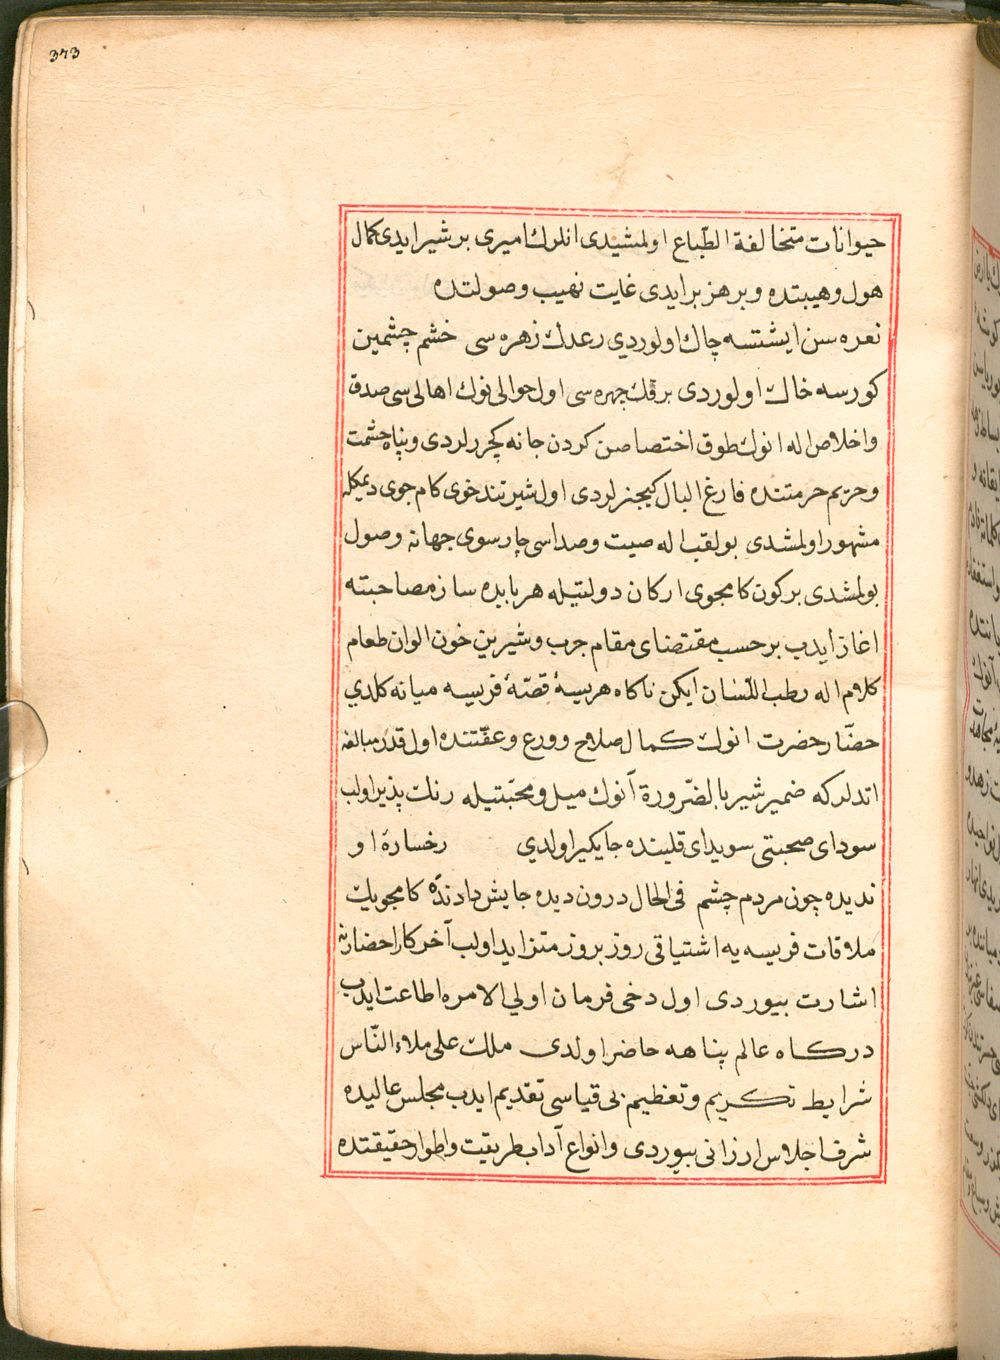 373
حیوانات متخالفة الطّباع اولمشیدی انلرك امیری بر شیر ایدی كمال
هول و هیبتده و بر هزبر ایدی غایت نهیب و صولتده
نعره سن ایشتسه چاك اولوردی رعدك زهره سی خشم چشمین
كورسه خاك اولوردی برقك چهره سی اول حوالی نوك اهالی سی صدق
و اخلاص اله انوك طوق اختصاصن كردن جانه كچررلردی و پناه حشمت
و حریم حرمتنده فارغ البال كیجنرلردی اول شیر تند خوی كام جوی دیمكله
مشهور اولمشدی بو لقب اله صیت و صداسی چار سوی جهانه وصول
بولمشدی بر كون كامجوی اركان دولتیله هر بابده ساز مصاحبته
اغاز ایدب بر حسب مقتضای مقام چرب و شیرین خون الوان طعام
كلام اله رطب اللّسان ایكن ناكاه هریسهٔ قصّهٔ فریسه میانه كلدی
حضّار حضرت انوك كمال صلاح و ورع و عفّتنده اول قدر مبالغه
اتدلر كه ضمیر شیر بالضّرورة آنوك میل و محبّتیله رنك پذیر اولب
سودای صحبتی سویدای قلبنده جایكیر اولدی رخسارهٔ او
ندیده چون مردم چشم فی الحال درون دیده جایش دادند كامجویك
ملاقات فریسه یه اشتیاقی روز بروز متزاید اولب آخر كار احضارنه
اشارت بیوردی اول دخی فرمان اولی الامره اطاعت ایدب
دركاه عالم پناهه حاضر اولدی ملك علی ملاء النّاس
شرایط تكریم و تعظیم بی قیاسی تقدیم ایدب مجلس عالیده
شرف اجلاس ارزانی بیوردی و انواع آداب طریقت و اطوار حقیقتده